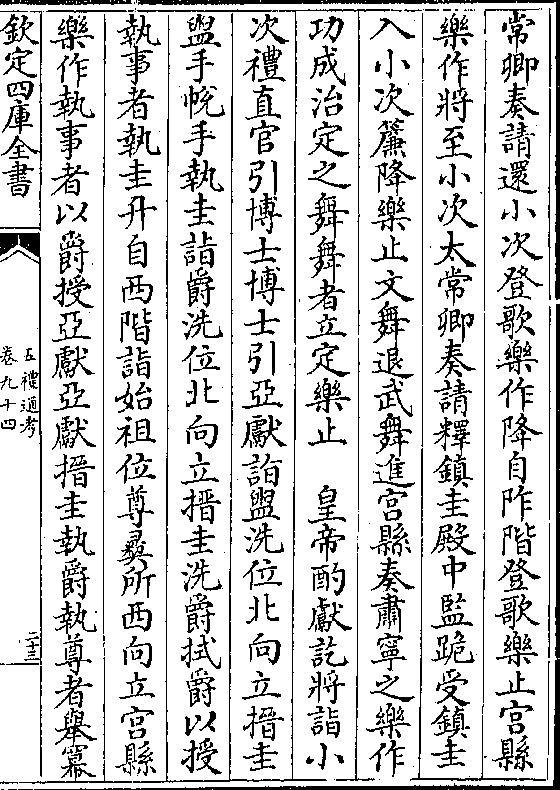 常卿奏請還小次登歌樂作降自阼階登歌樂止宫縣
樂作將至小次太常卿奏請釋鎮圭殿中監跪受鎮圭
入小次簾降樂止文舞退武舞進宫縣奏肅寧之樂作
功成治定之舞舞者立定樂止　皇帝酌獻訖將詣小
次禮直官引博士博士引亞獻詣盥洗位北向立搢圭
盥手帨手執圭詣爵洗位北向立搢圭洗爵拭爵以授
執事者執圭升自西階詣始祖位尊彞所西向立宫縣
樂作執事者以爵授亞獻亞獻搢圭執爵執尊者舉冪
欽定四庫全書
五禮通考
卷九十四
二十三